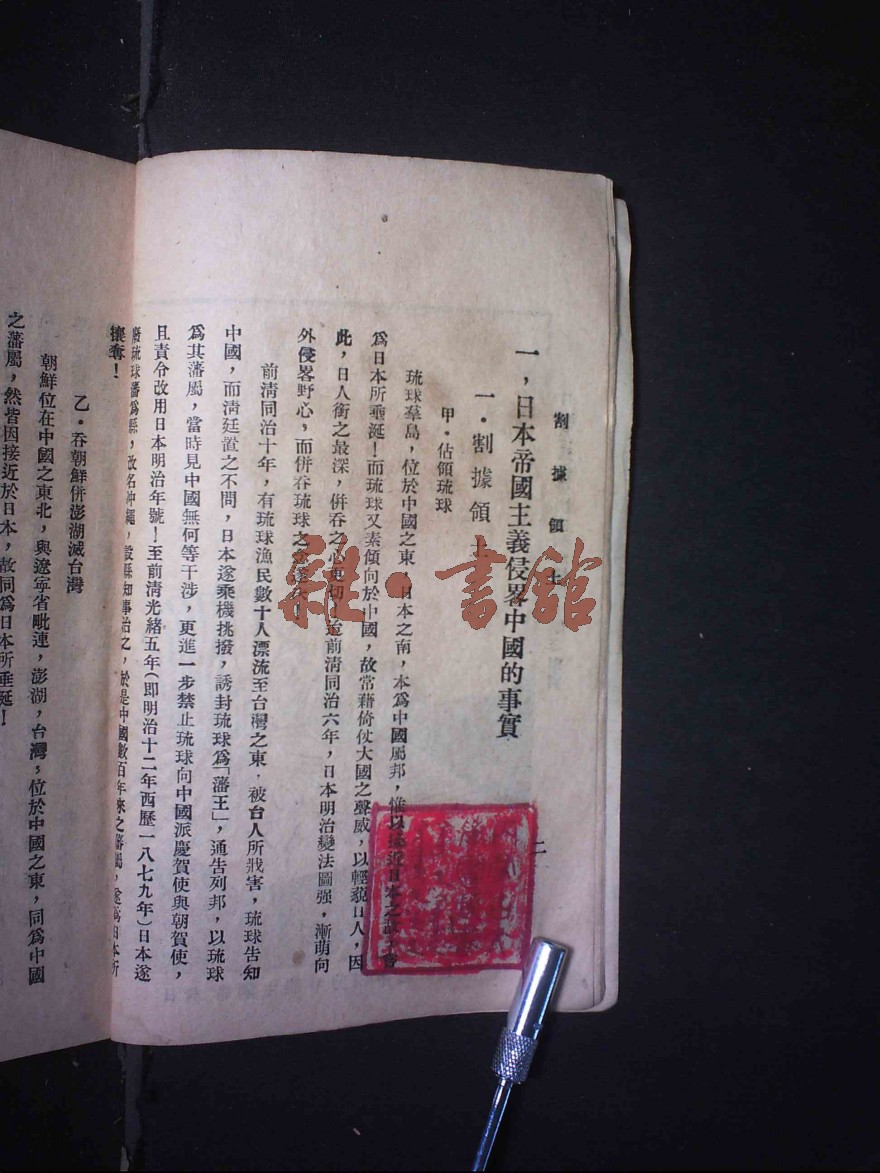 割據領土
二
一，日本帝國主義侵畧中國的事實
一．割據領土
甲．佔領琉球
琉球羣島，位於中國之東 日本之南，本爲中國屬邦，惟以接近日本之故
爲日本所垂涎！而琉球又素傾向於中國，故常藉倚仗大國之聲威，以輕藐日人，因
此，日人銜之最深，併吞之心更切 前清同治六年，日本明治變法圖强，漸萌向
外侵畧野心，而併吞琉球之
前清同治十年，有琉球漁民數十人漂流至台灣之東，被台人所戕害，琉球告知
中國，而淸廷置之不問，日本遂乘機挑撥，誘封琉球爲「藩王」，通告列邦，以琉球
爲其藩屬，當時見中國無何等干涉，更進一步禁止琉球向中國派慶賀使與朝賀使，
且責令改用日本明治年號！至前清光緒五年（即明治十二年西歷一八七九年）日本遂
廢琉球藩爲縣，改名沖繩，設縣知事治之，於是中國數百年來之藩屬，遂爲日本所
攘奪！
乙．吞朝鮮併澎湖滅台灣
朝鮮位在中國之東北，與遼寧省毗連，澎湖，台灣，位於中國之東，同爲中國
之藩屬，然皆因接近於日本，故同爲日本所垂涎！
雜·書館